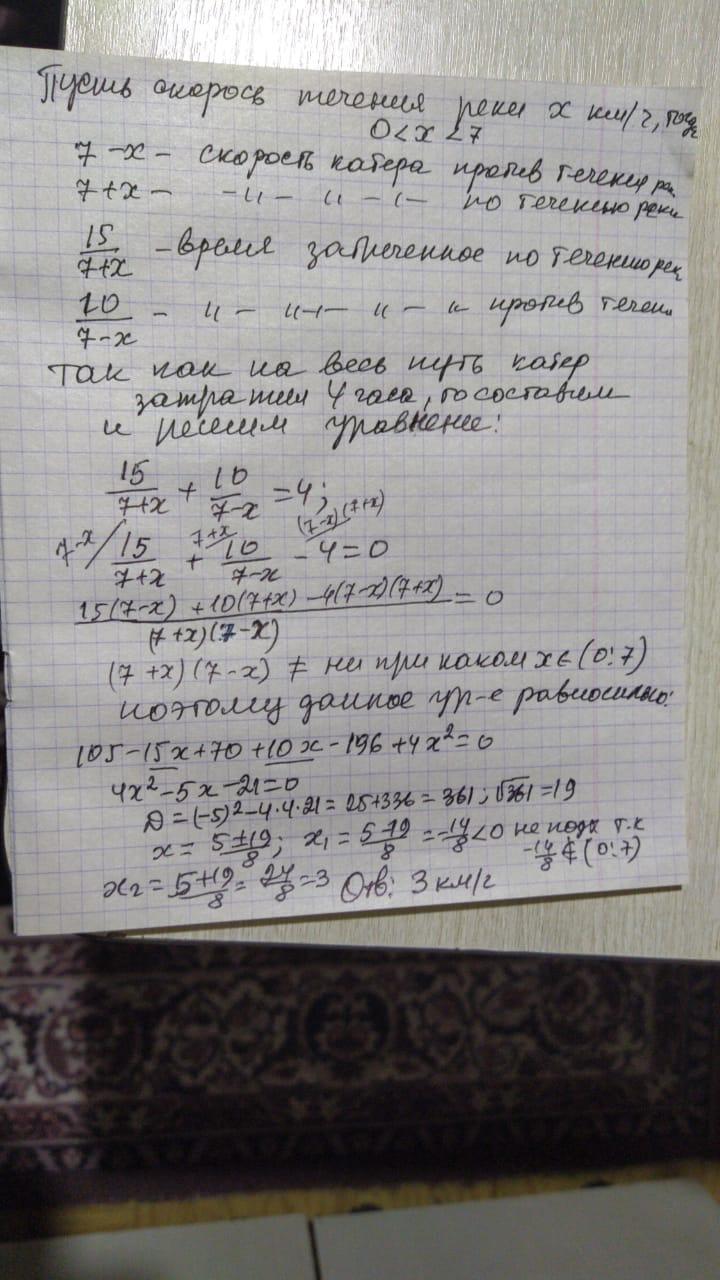 Пусть скорось течения реки x км/ч, тогда
0<x<7
7-x - скорость катера против течения рек
7+x - -"- " -"- по течению реки
15/(7+x) - время затраченное по течению рек
10/(7-x) - " - " - " - " против течен.
Так как на весь путь катер
затратил 4 часа, то составим
и решим уравнение:
15/(7+x) + 10/(7-x) = 4;
7-x/ 15/(7+x) + 7+x/ 10/(7-x) - (7-x)(7+x)/ 4 = 0
(15(7-x) + 10(7+x) - 4(7-x)(7+x))/((7+x)(7-x)) = 0
(7+x)(7-x) ≠ ни при каком x ∈ (0;7)
поэтому данное ур-е равносильно:
105-15x+70+10x-196+4x²=0
4x²-5x-21=0
D=(-5)²-4·4·21=25+336=361; √361=19
x = (5±19)/8; x₁ = (5-19)/8 = -14/8 <0 не подх т.к
-14/8 ∉ (0;7)
x₂ = (5+19)/8 = 24/8 = 3 Отв: 3 км/г